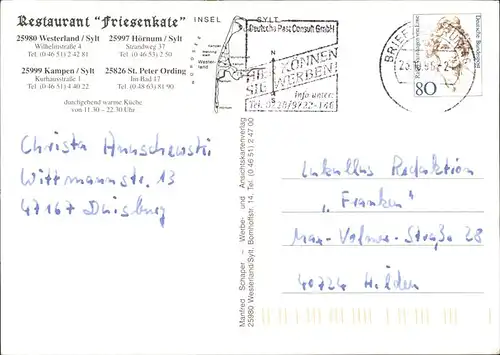 Restaurant "Friesenkate"
25980 Westerland / Sylt
Wilhelmstraße 4
Tel. (0 46 51) 2 42 81
25997 Hörnum / Sylt
Strandweg 37
Tel. (0 46 53) 2 50
25999 Kampen / Sylt
Kurhausstraße 1
Tel. (0 46 51) 4 40 22
25826 St. Peter Ording
Im Bad 17
Tel. (0 48 63) 81 90
durchgehend warme Küche
von 11.30 – 22.30 Uhr
INSEL SYLT
NORDSEE
Westerland
N
S
Deutsche Post Consult GmbH
HIER KÖNNEN
SIE WERBEN!
Info unter:
BRIEF
Deutsche Bundespost
80
Christa Anuschewski
Wittmannstr. 13
47167 Duisburg
Manfred Schaper – Werbe- und Ansichtskartenverlag
25980 Westerland/Sylt, Bomhoffstr. 14, Tel. (0 46 51) 2 47 00
Lukullus Redaktion
„Franken"
Max-Volmer-Straße 28
40724 Hilden